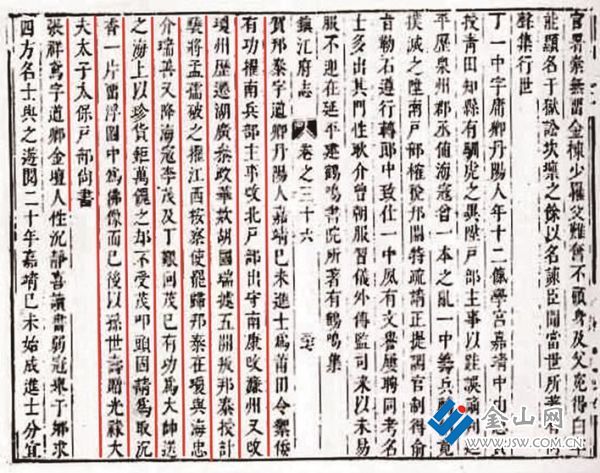 官署泰無留金棟少羅父難奮不顧身及父冤得白
能顯名于獄訟坎壈之餘以名諫臣聞當世所著有
聲集行世
丁一中字庸卿丹陽人年十二
學宮嘉靖中
授青田知縣有馴虎之異陞戶部主事以詿誤謫
平歷泉州郡丞値海寇曾一本之亂一中籌兵
撲滅之陞南戶部榷稅邦關特疏請正提調官制得俞
旨勒石遵行轉郎中致仕一中夙有文譽屢聘同考名
士多出其門性耿介曾朝服習儀外傳監司來以未易
服不迎在延平建鶴鳴書院所著有鶴鳴集
鎮江府志
卷之三十六
賀邦泰字道卿丹陽人嘉靖己未進士爲莆田令禦倭
有功擢南兵部主事改北戶部出守南康改蘇州又改
瓊州歷遷湖廣參政華款胡國瑞據五開叛邦泰授計
驍將孟孺破之擢江西按察使罷歸邦泰在瓊與海忠
介瑞善又降海寇李茂及丁艱問茂已有功爲大帥送
之海上以珍貨鉅萬餽之却不受茂叩頭固請爲取沉
香一片留浮圖中爲佛像而已後以孫世壽贈光祿大
夫太子太保戶部尚書
張祥鳶字道卿金壇人性沉靜喜讀書弱冠舉于鄉求
四方名士與之遊閱二十年嘉靖己未始成進士分宜
金山网
WWW.JSW.COM.CN